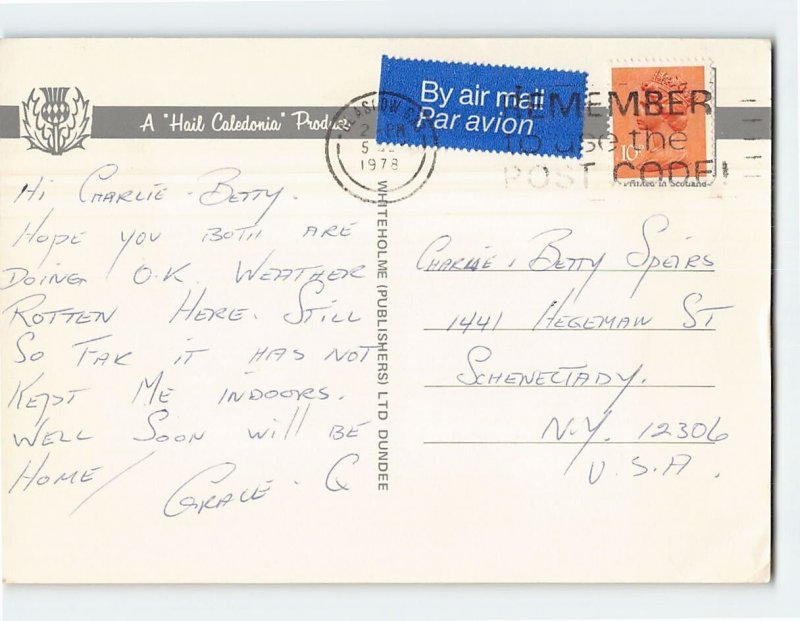 A "Hail Caledonia" Product
By air mail
Par avion
GLASGOW
2 PM
5
1978
REMEMBER
to use the
POST CODE!
10
Printed in Scotland
Hi Charlie - Betty.
Hope you both are
Doing O.K. Weather
Rotten Here. Still
So Far it has not
Kept Me indoors.
Well Soon will be
Home
Grace - G
WHITEHOLME (PUBLISHERS) LTD DUNDEE
Charlie & Betty Speirs
1441 Hegeman St
Schenectady.
N.Y. 12306
U.S.A.